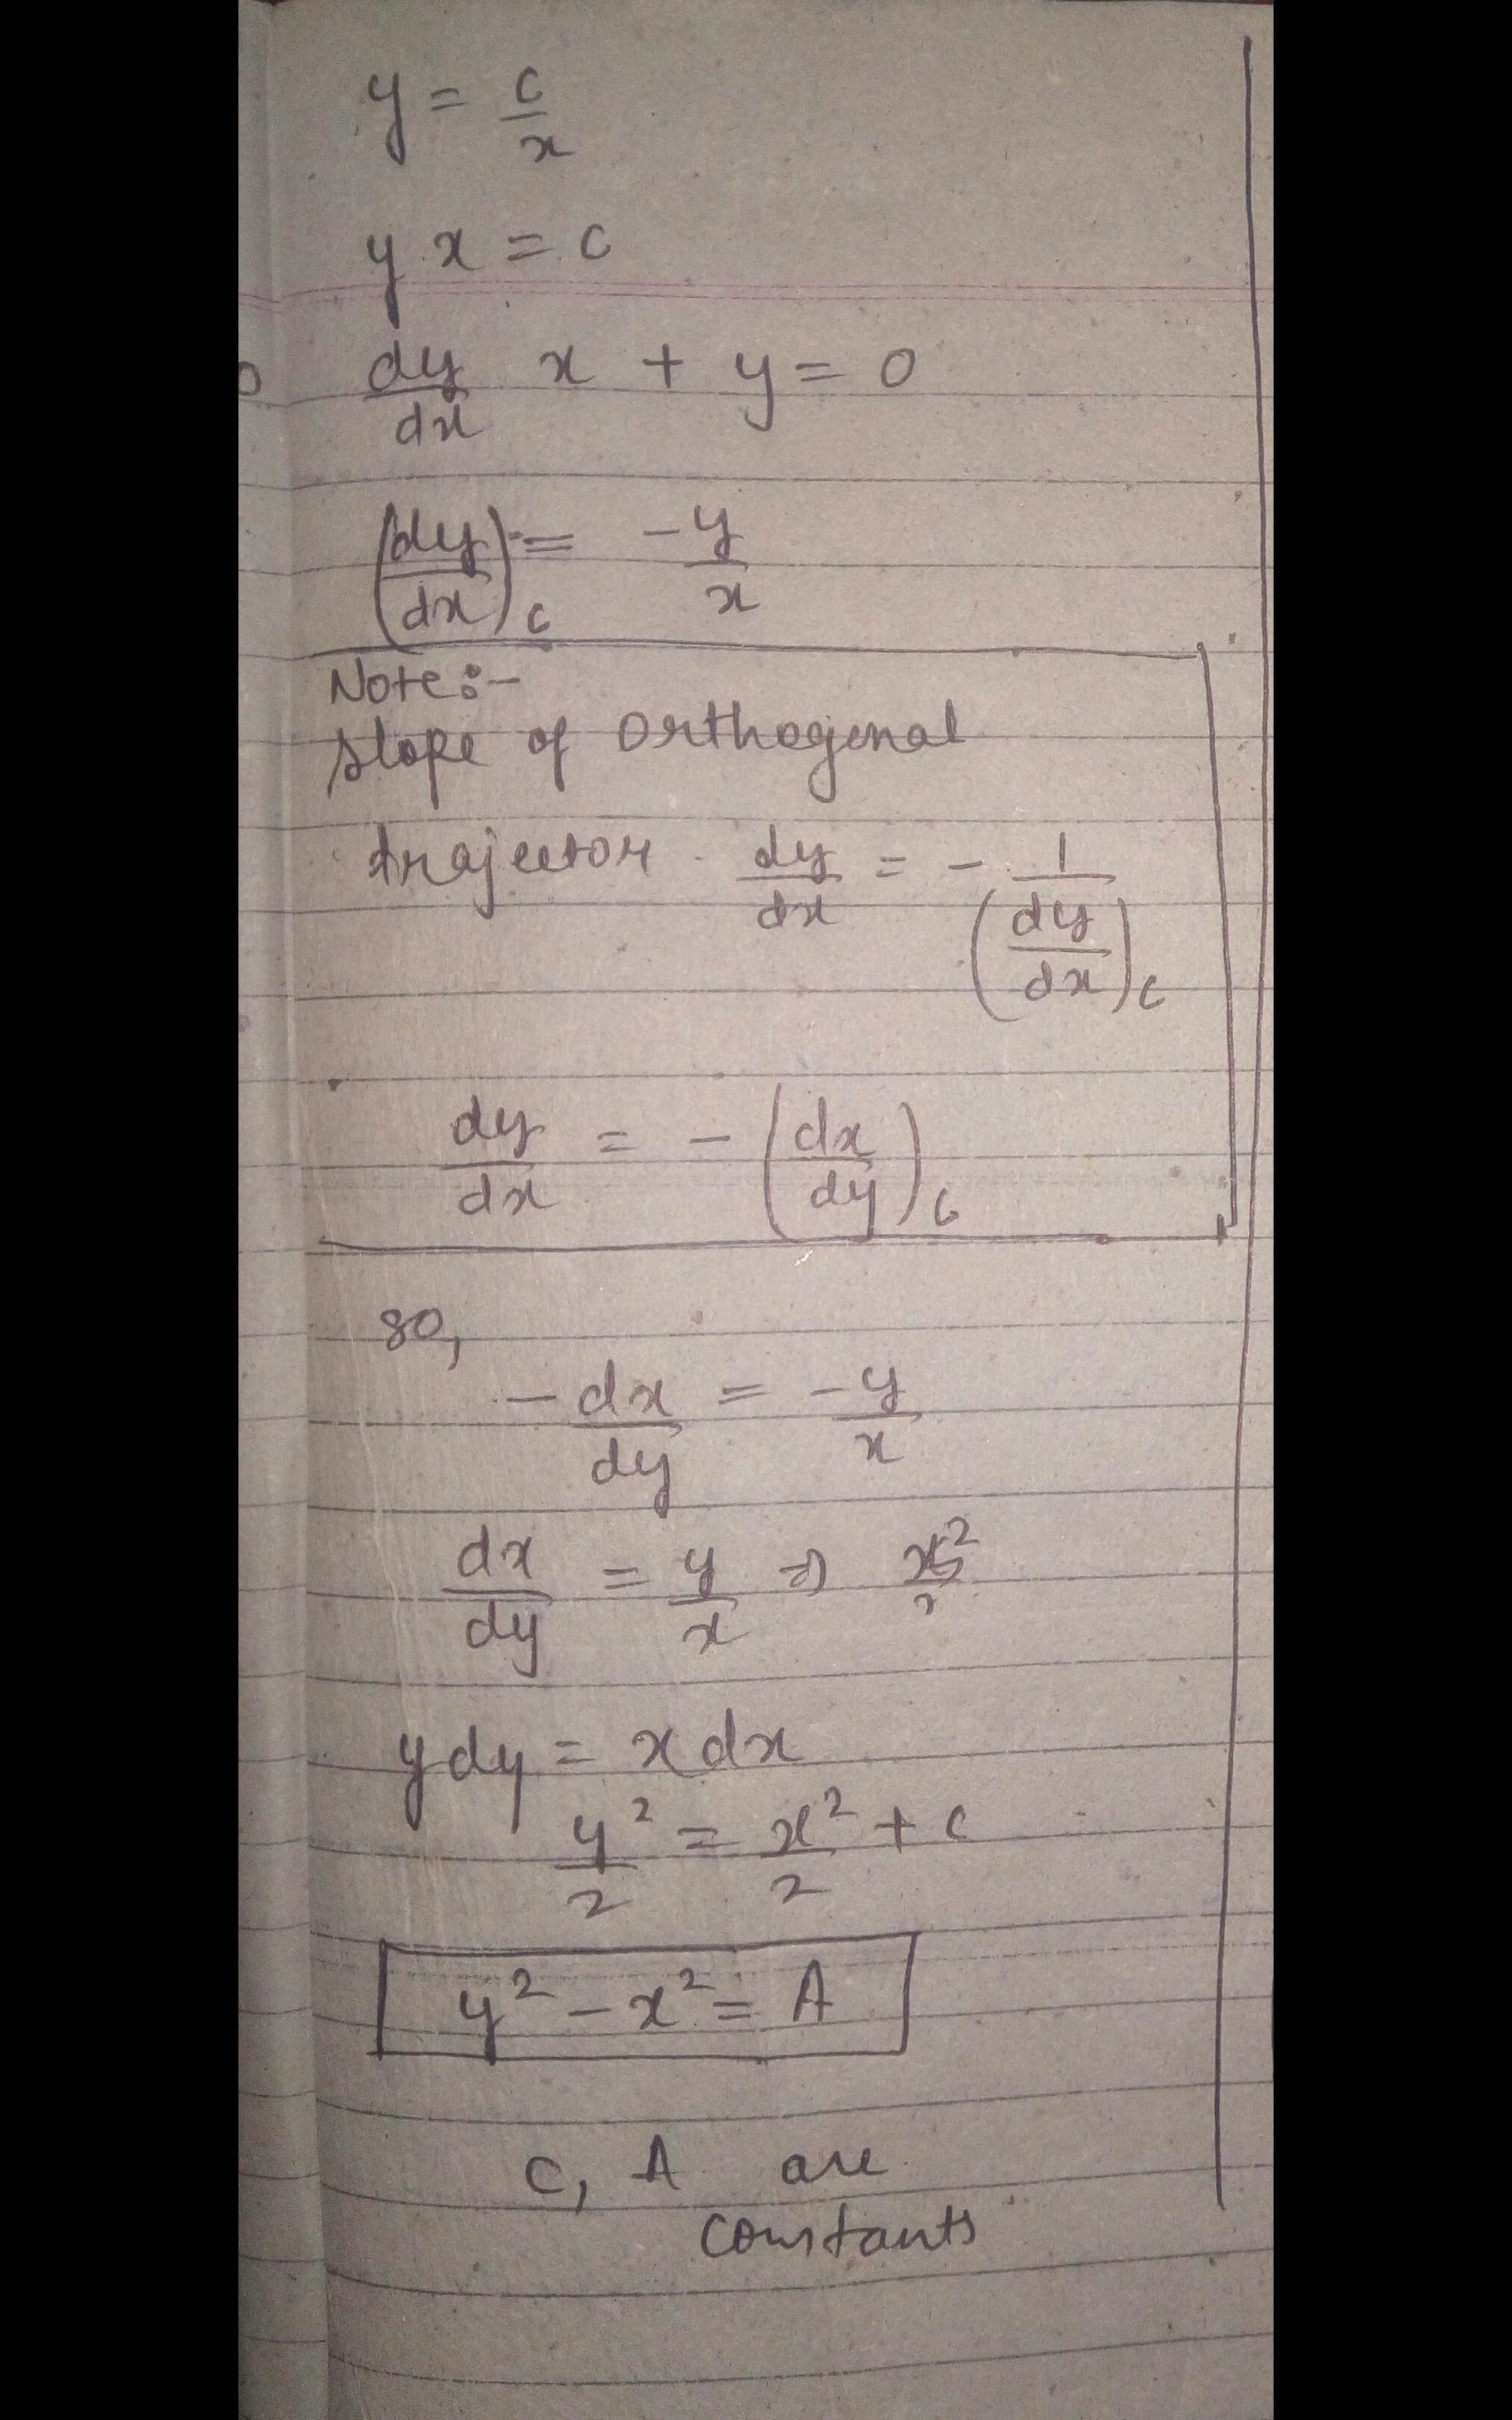 y = c/x
y x = c
dy/dx x + y = 0
(dy/dx)c = -y/x
Note:-
slope of orthogenal
trajector dy/dx = - 1/(dy/dx)c
dy/dx = - (dx/dy)c
so,
- dx/dy = -y/x
dx/dy = y/x ⇒
y dy = x dx
y²/2 = x²/2 + c
y² - x² = A
c, A are
constants